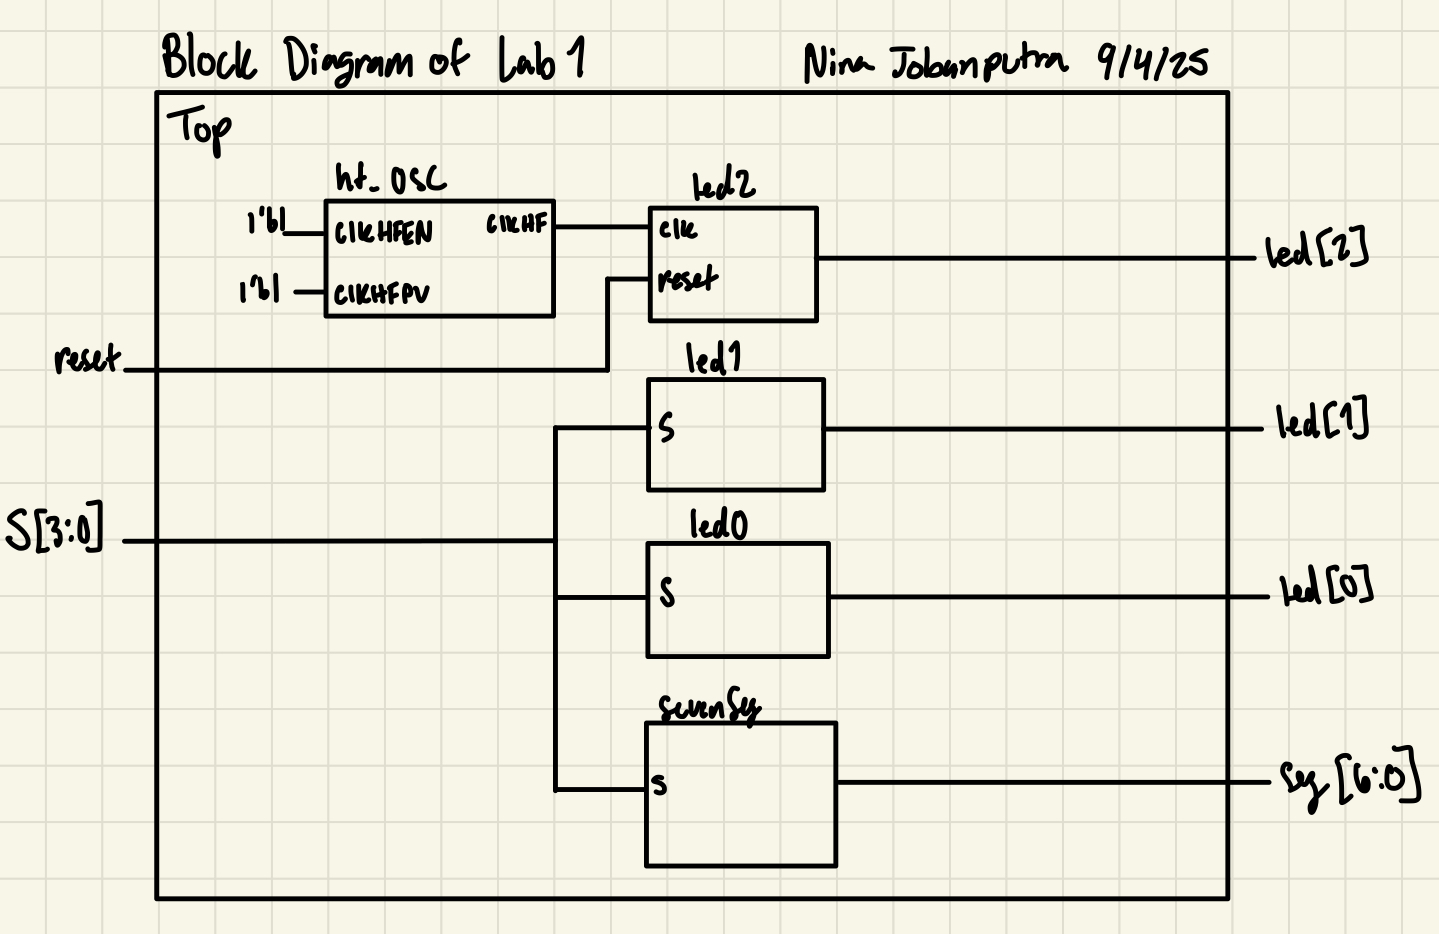 Block Diagram of Lab 1
Nina Jobanputra 9/4/25
Top
ht_osc
1'b1
ClkHFEN
ClkHF
1'b1
ClkHFPU
led2
clk
reset
led[2]
reset
led1
S
led[1]
S[3:0]
led0
S
led[0]
sevenSeg
S
Seg[6:0]